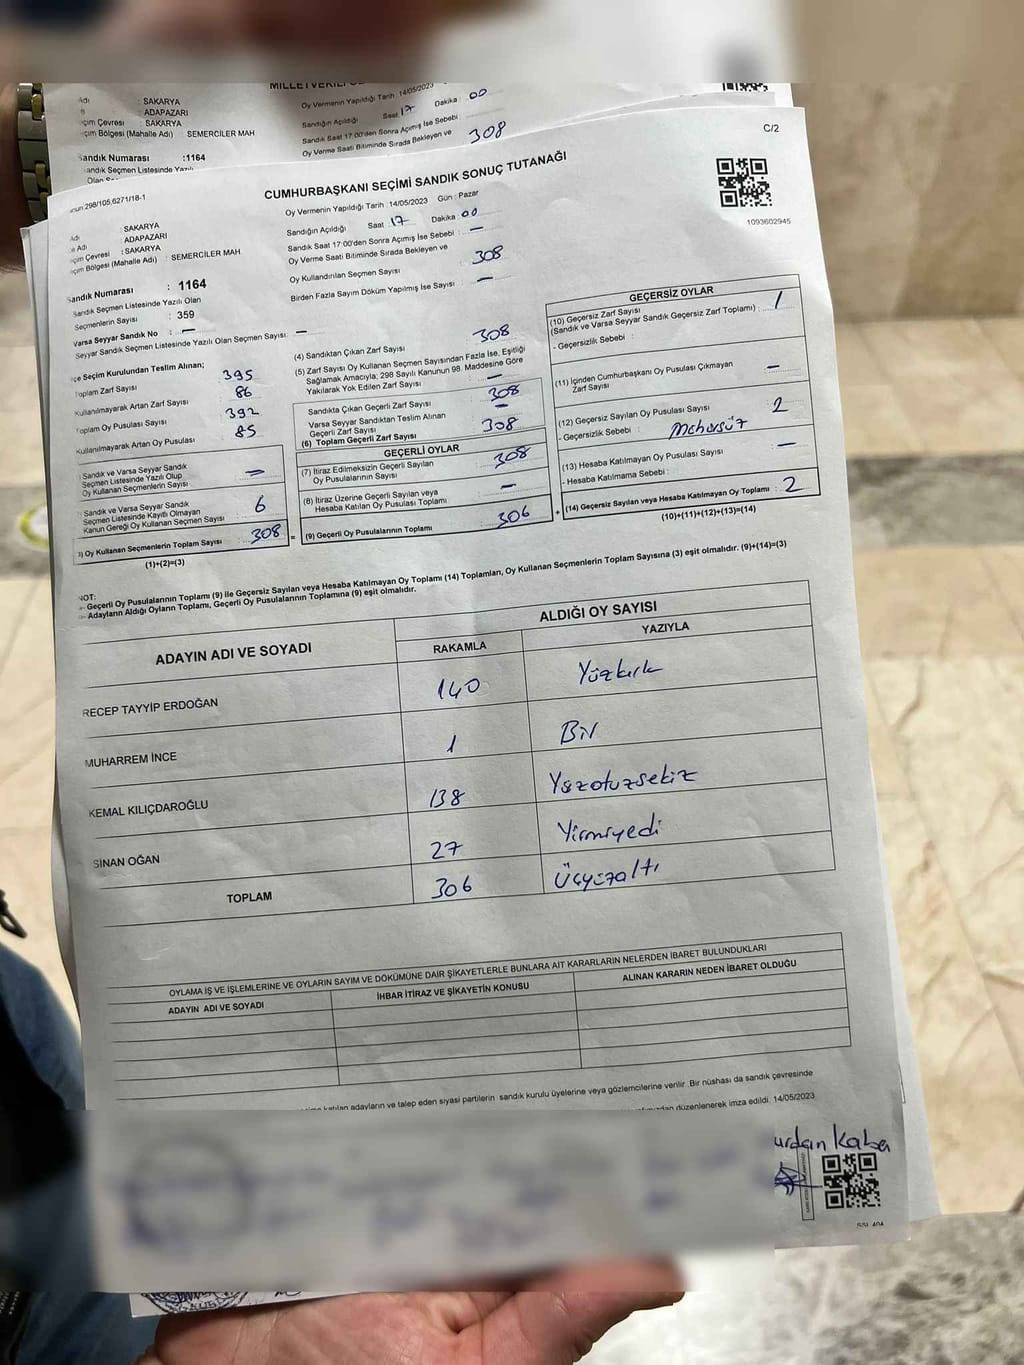 MİLLETVEKİLİ
Adı : SAKARYA
ADAPAZARI
çim Çevresi : SAKARYA
çim Bölgesi (Mahalle Adı) SEMERCİLER MAH
Sandık Numarası :1164
andık Seçmen Listesinde Yazılı
Olan
Oy Vermenin Yapıldığı Tarih : 14/05/2023
Sandığın Açıldığı Saat 17 Dakika : 00
Sandık Saat 17:00'den Sonra Açımış İse Sebebi :
Oy Verme Saati Bitiminde Sırada Bekleyen ve 308
C/2
CUMHURBAŞKANI SEÇİMİ SANDIK SONUÇ TUTANAĞI
nun 298/105,6271/18-1
1093602945
Adı : SAKARYA
e Adı : ADAPAZARI
çim Çevresi : SAKARYA
çim Bölgesi (Mahalle Adı) : SEMERCİLER MAH
Sandık Numarası : 1164
Sandık Seçmen Listesinde Yazılı Olan
Seçmenlerin Sayısı : 359
Varsa Seyyar Sandık No : —
Seyyar Sandık Seçmen Listesinde Yazılı Olan Seçmen Sayısı : —
Oy Vermenin Yapıldığı Tarih : 14/05/2023 Gün : Pazar
Sandığın Açıldığı Saat : 17 Dakika : 00
Sandık Saat 17:00'den Sonra Açımış İse Sebebi : —
Oy Verme Saati Bitiminde Sırada Bekleyen ve
Oy Kullandırılan Seçmen Sayısı 308
Birden Fazla Sayım Döküm Yapılmış İse Sayısı : —
çe Seçim Kurulundan Teslim Alınan;
Toplam Zarf Sayısı 395
Kullanılmayarak Artan Zarf Sayısı 86
Toplam Oy Pusulası Sayısı 392
Kullanılmayarak Artan Oy Pusulası 85
Sandık ve Varsa Seyyar Sandık
Seçmen Listesinde Yazılı Olup
Oy Kullanan Seçmenlerin Sayısı
Sandık ve Varsa Seyyar Sandık
Seçmen Listesinde Kayıtlı Olmayan
Kanun Gereği Oy Kullanan Seçmen Sayısı 6
3) Oy Kullanan Seçmenlerin Toplam Sayısı 308
(1)+(2)=(3)
(4) Sandıktan Çıkan Zarf Sayısı 308
(5) Zarf Sayısı Oy Kullanan Seçmen Sayısından Fazla İse, Eşitliği
Sağlamak Amacıyla; 298 Sayılı Kanunun 98. Maddesine Göre
Yakılarak Yok Edilen Zarf Sayısı —
Sandıkta Çıkan Geçerli Zarf Sayısı 308
Varsa Seyyar Sandıktan Teslim Alınan
Geçerli Zarf Sayısı —
(6) Toplam Geçerli Zarf Sayısı 308
GEÇERLİ OYLAR
(7) İtiraz Edilmeksizin Geçerli Sayılan
Oy Pusulalarının Sayısı 308
(8) İtiraz Üzerine Geçerli Sayılan veya
Hesaba Katılan Oy Pusulası Toplamı —
= (9) Geçerli Oy Pusulalarının Toplamı 306 +
GEÇERSİZ OYLAR
(10) Geçersiz Zarf Sayısı
(Sandık ve Varsa Seyyar Sandık Geçersiz Zarf Toplamı) : 1
- Geçersizlik Sebebi :
(11) İçinden Cumhurbaşkanı Oy Pusulası Çıkmayan
Zarf Sayısı —
(12) Geçersiz Sayılan Oy Pusulası Sayısı 2
- Geçersizlik Sebebi : Mühürsüz
(13) Hesaba Katılmayan Oy Pusulası Sayısı —
- Hesaba Katılmama Sebebi :
(14) Geçersiz Sayılan veya Hesaba Katılmayan Oy Toplamı : 2
(10)+(11)+(12)+(13)=(14)
NOT:
- Geçerli Oy Pusulalarının Toplamı (9) ile Geçersiz Sayılan veya Hesaba Katılmayan Oy Toplamı (14) Toplamları, Oy Kullanan Seçmenlerin Toplam Sayısına (3) eşit olmalıdır. (9)+(14)=(3)
- Adayların Aldığı Oyların Toplamı, Geçerli Oy Pusulalarının Toplamına (9) eşit olmalıdır.
ADAYIN ADI VE SOYADI ALDIĞI OY SAYISI
RAKAMLA YAZIYLA
RECEP TAYYİP ERDOĞAN 140 Yüzkırk
MUHARREM İNCE 1 Bir
KEMAL KILIÇDAROĞLU 138 Yüzotuzsekiz
SİNAN OĞAN 27 Yirmiyedi
TOPLAM 306 Üçyüzaltı
OYLAMA İŞ VE İŞLEMLERİNE VE OYLARIN SAYIM VE DÖKÜMÜNE DAİR ŞİKAYETLERLE BUNLARA AİT KARARLARIN NELERDEN İBARET BULUNDUKLARI
ADAYIN ADI VE SOYADI İHBAR İTİRAZ VE ŞİKAYETİN KONUSU ALINAN KARARIN NEDEN İBARET OLDUĞU
katılan adayların ve talep eden siyasi partilerin sandık kurulu üyelerine veya gözlemcilerine verilir. Bir nüshası da sandık çevresinde
düzenlenerek imza edildi. 14/05/2023
urdan Kaba